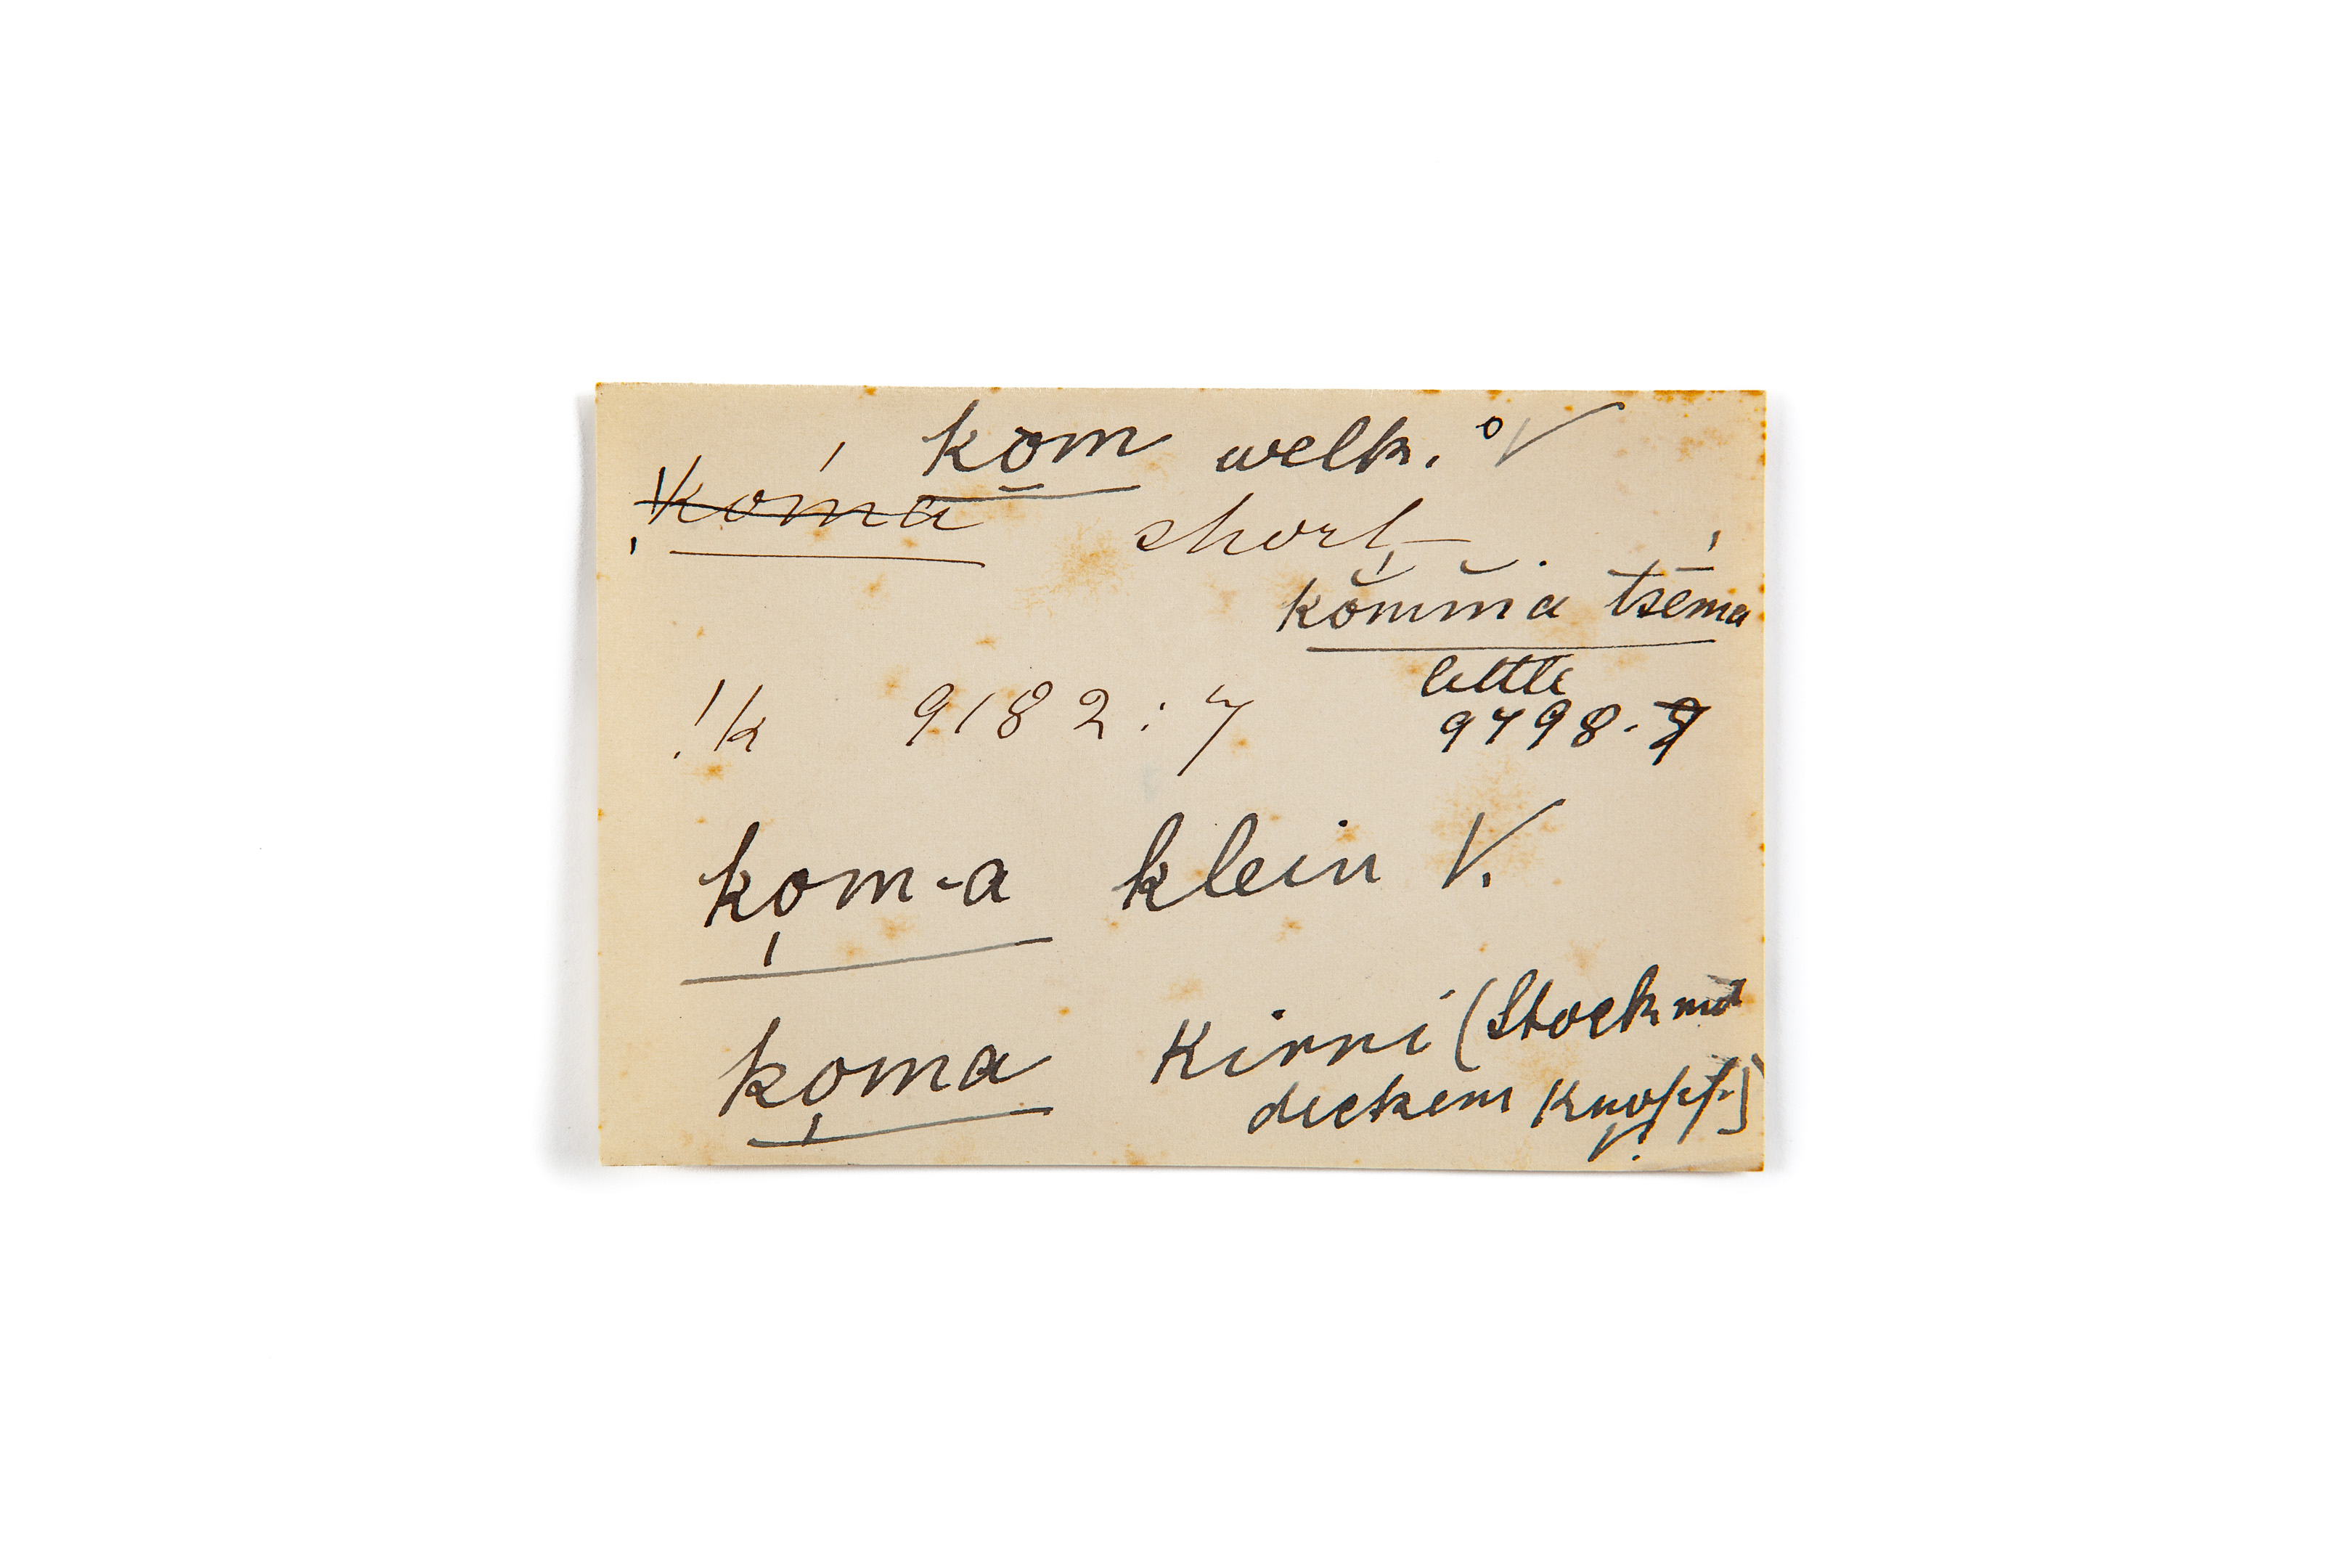 ko̱m welk. °V
!kóma short
kŏ́mm̆a tsḗma
little
!k 9182:7
9798.9
ko̩m-a klein V.
ko̩ma Kirri (Stock mit
dickem Knopf)
V.